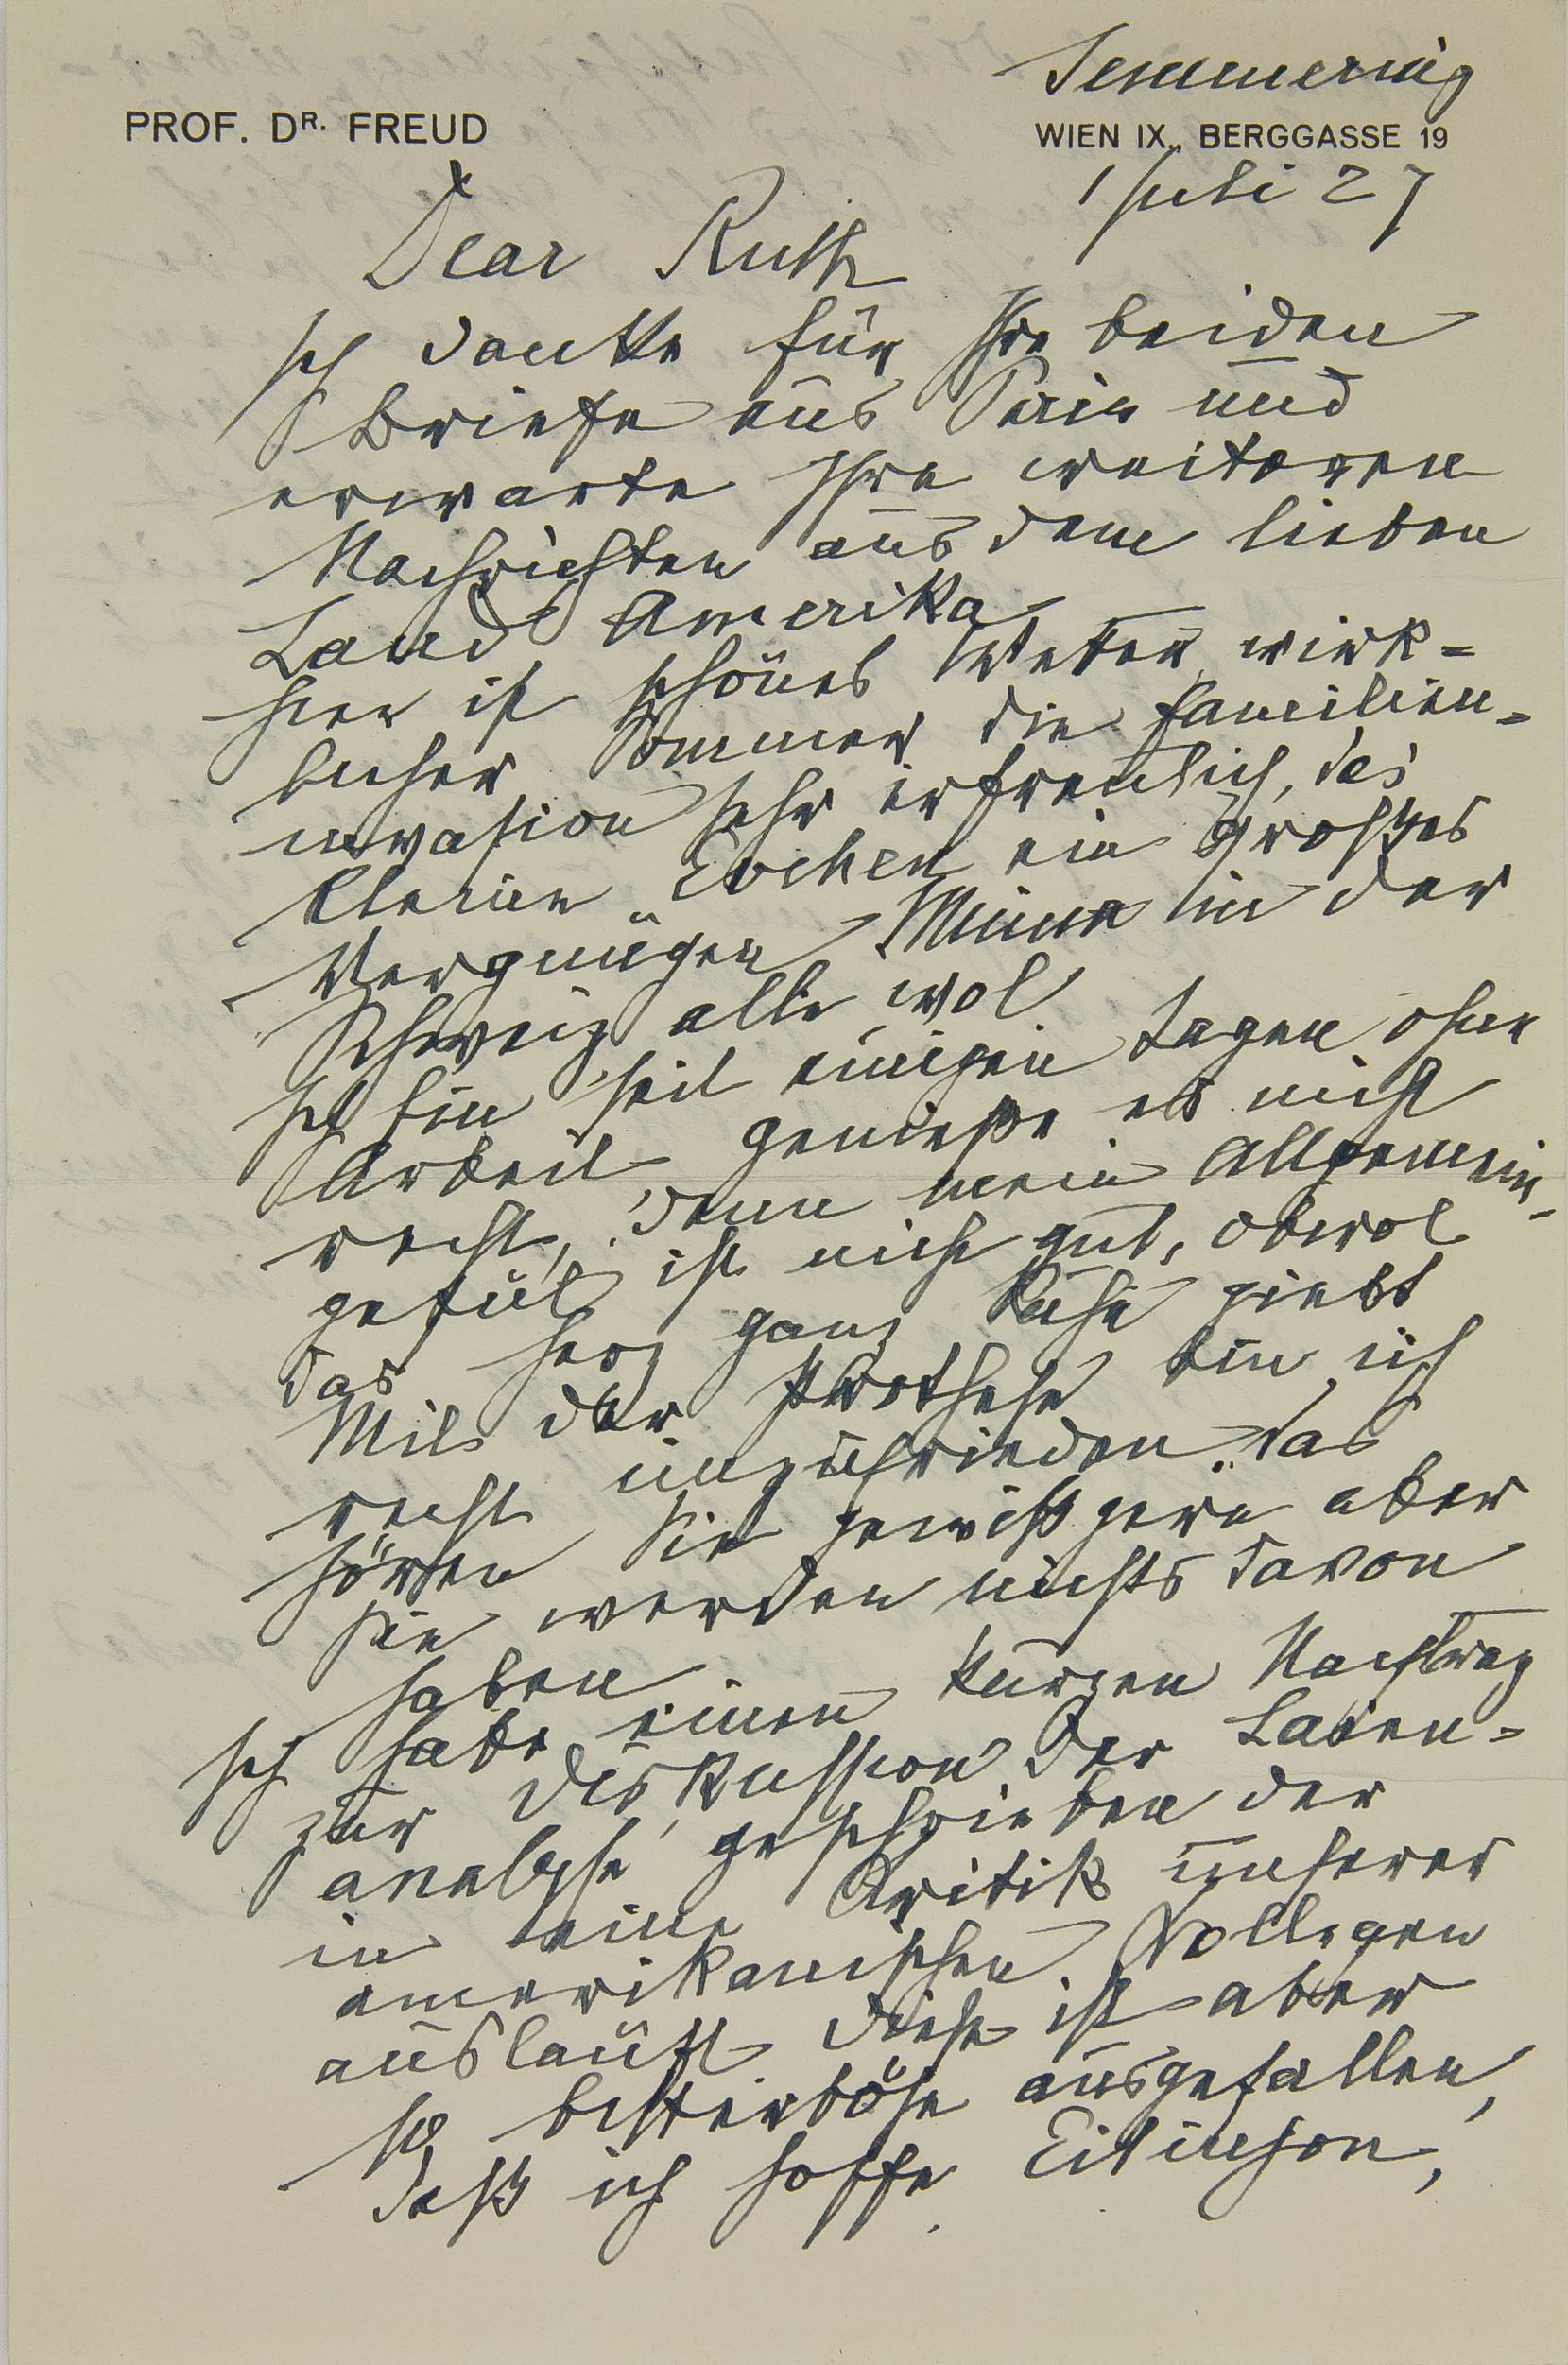 Semmering
PROF. DR. FREUD
WIEN IX., BERGGASSE 19
1 Juli 27
Dear Ruth
Ich danke für Ihre beiden
Briefe aus Paris und
erwarte Ihre weiteren
Nachrichten aus dem lieben
Land Amerika
Hier ist schönes Wetter, wirk=
licher Sommer, die Familien=
invasion sehr erfreulich, das
kleine Evchen ein großes
Vergnügen, Minna in der
Schweiz, alle wol
Ich bin seit einigen Tagen ohne
Arbeit, genieße es nicht
recht, denn mein Allgemein-
gefül ist nicht gut, obwol
das Herz ganz Ruhe giebt
Mit der Prothese bin ich
recht unzufrieden. Das
hören Sie gewiß gern aber
Sie werden nichts davon
haben
Ich habe einen kurzen Nachtrag
zur Diskussion der Laien=
analyse geschrieben der
in eine Kritik unserer
amerikanischen Kollegen
ausläuft. Diese ist aber
so bitterböse ausgefallen,
daß ich hoffe Eitingon,